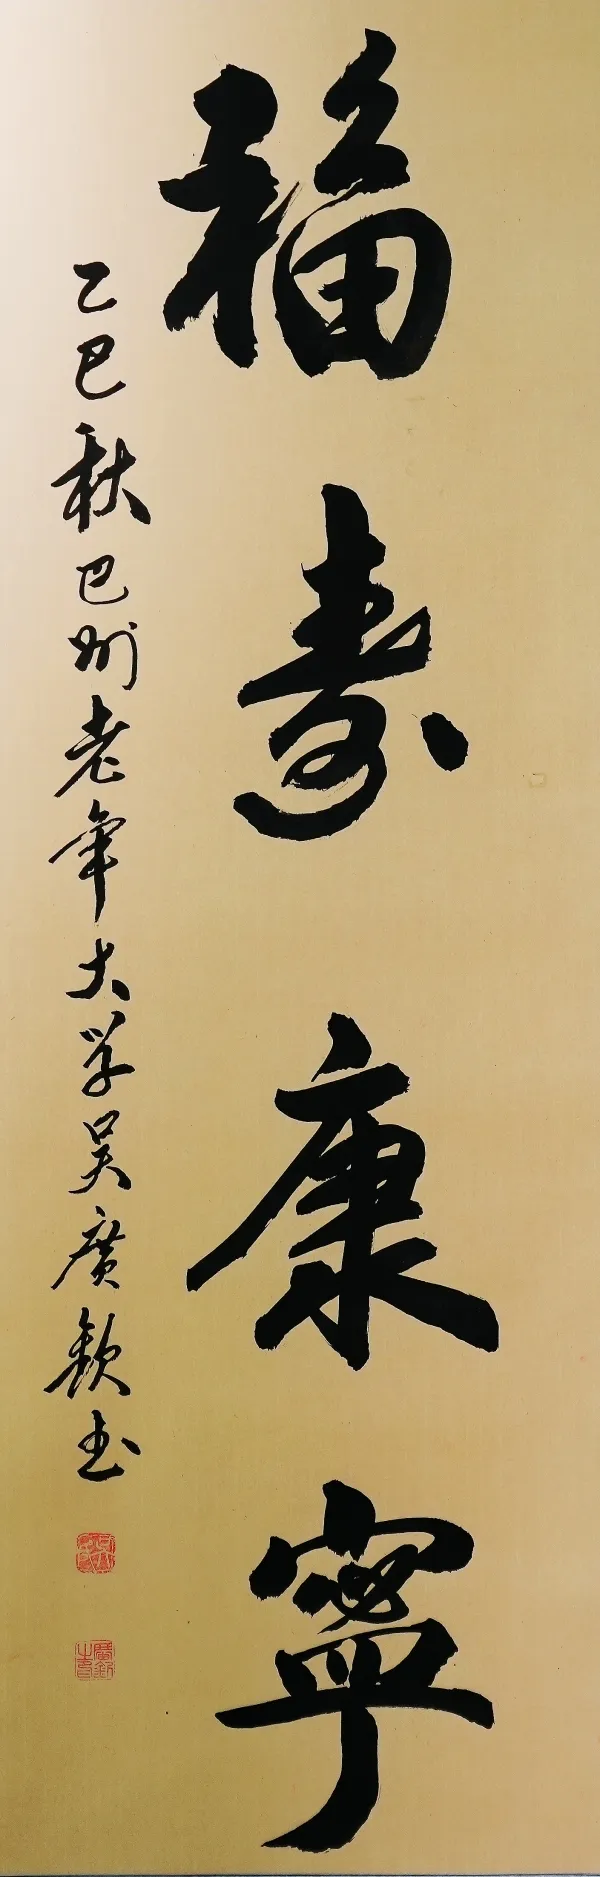 福壽康寧
乙巳秋巴州老年大学吴廣欽书